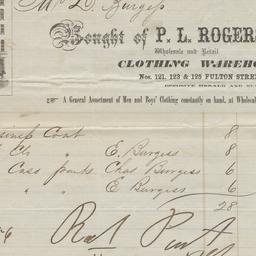 Mr D. Burgess
Bought of P. L. ROGERS
Wholesale and Retail
CLOTHING WAREHO
Nos. 121, 123 & 125 FULTON STRE
OPPOSITE HERALD AND
A General Assortment of Men and Boys' Clothing constantly on hand, at Wholesal
Coat 8
" E. Burgess 8
Cass pants Chas Burgess 6
" " E Burgess 6
28